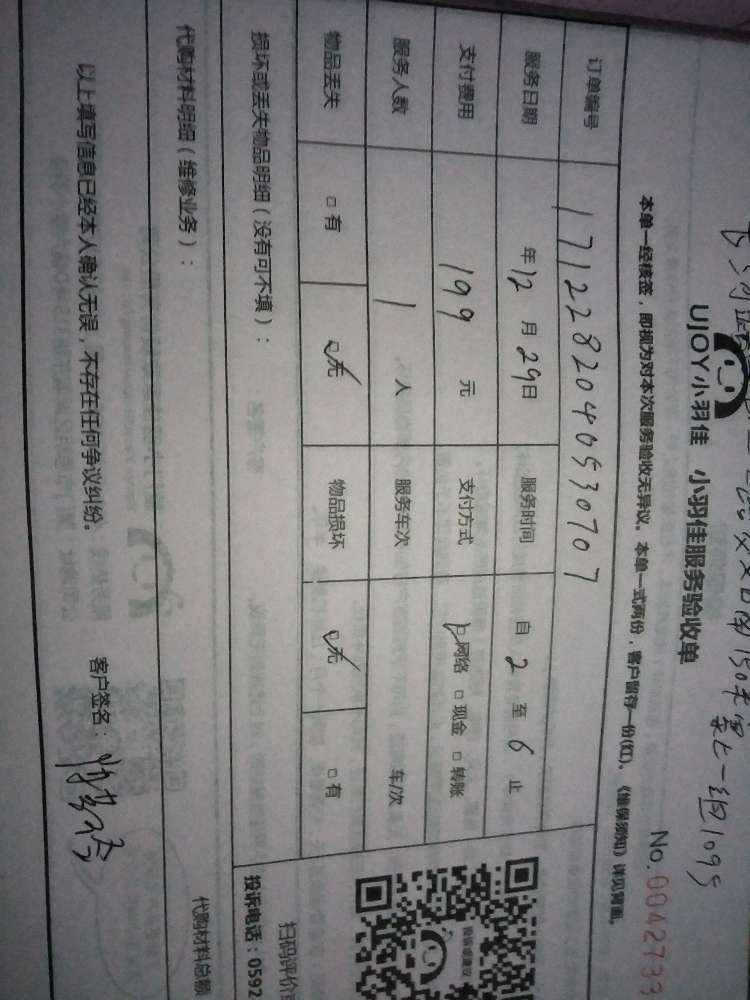 UJOY小羽佳 小羽佳服务验收单
No.0042733
本单一经核签，即视为对本次服务验收无异议。本单一式两份，客户留存一份(红)。《维保须知》详见背面。
订单编号 1712282040530707
服务日期 年12月29日 服务时间 自2至6止
支付费用 199元 支付方式 网络 现金 转账
服务人数 1人 服务车次 车/次
物品丢失 有 无 物品损坏 无 有
损坏或丢失物品明细（没有可不填）：
投诉或建议
扫码评价
投诉电话：0592
代购材料明细（维修业务）：
代购材料总额
以上填写信息已经本人确认无误，不存在任何争议纠纷。 客户签名：